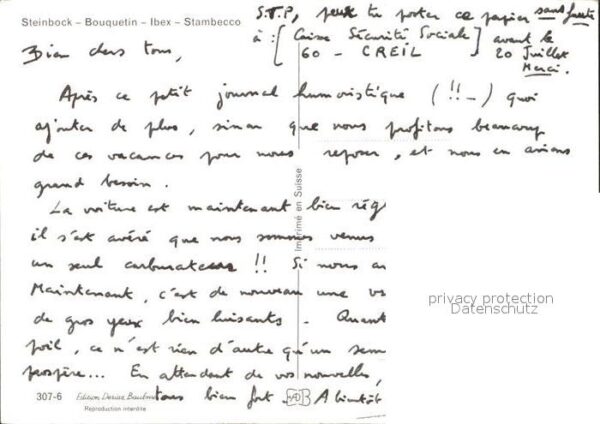 Steinbock – Bouquetin – Ibex – Stambecco
S.T.P, peux tu porter ce papier sans faute
à : [Caisse Sécurité Sociale] avant le
60 - CREIL 20 Juillet
Merci.
Bien chers tous,
Après ce petit journal humoristique (!!_) quoi
ajouter de plus, sinon que nous profitons beaucoup
de ces vacances pour nous reposer, et nous en avions
grand besoin.
La voiture est maintenant bien rég
il s'est avéré que nous sommes venus
un seul carburateur !! Si nous av
Maintenant, c'est de nouveau une
de gros yeux bien luisants - Quant
poil, ce n'est rien d'autre qu'un sem
prospère... En attendant de vos nouvelles,
tous bien fort - A bientôt
Imprimé en Suisse
privacy protection
Datenschutz
307-6
Reproduction interdite